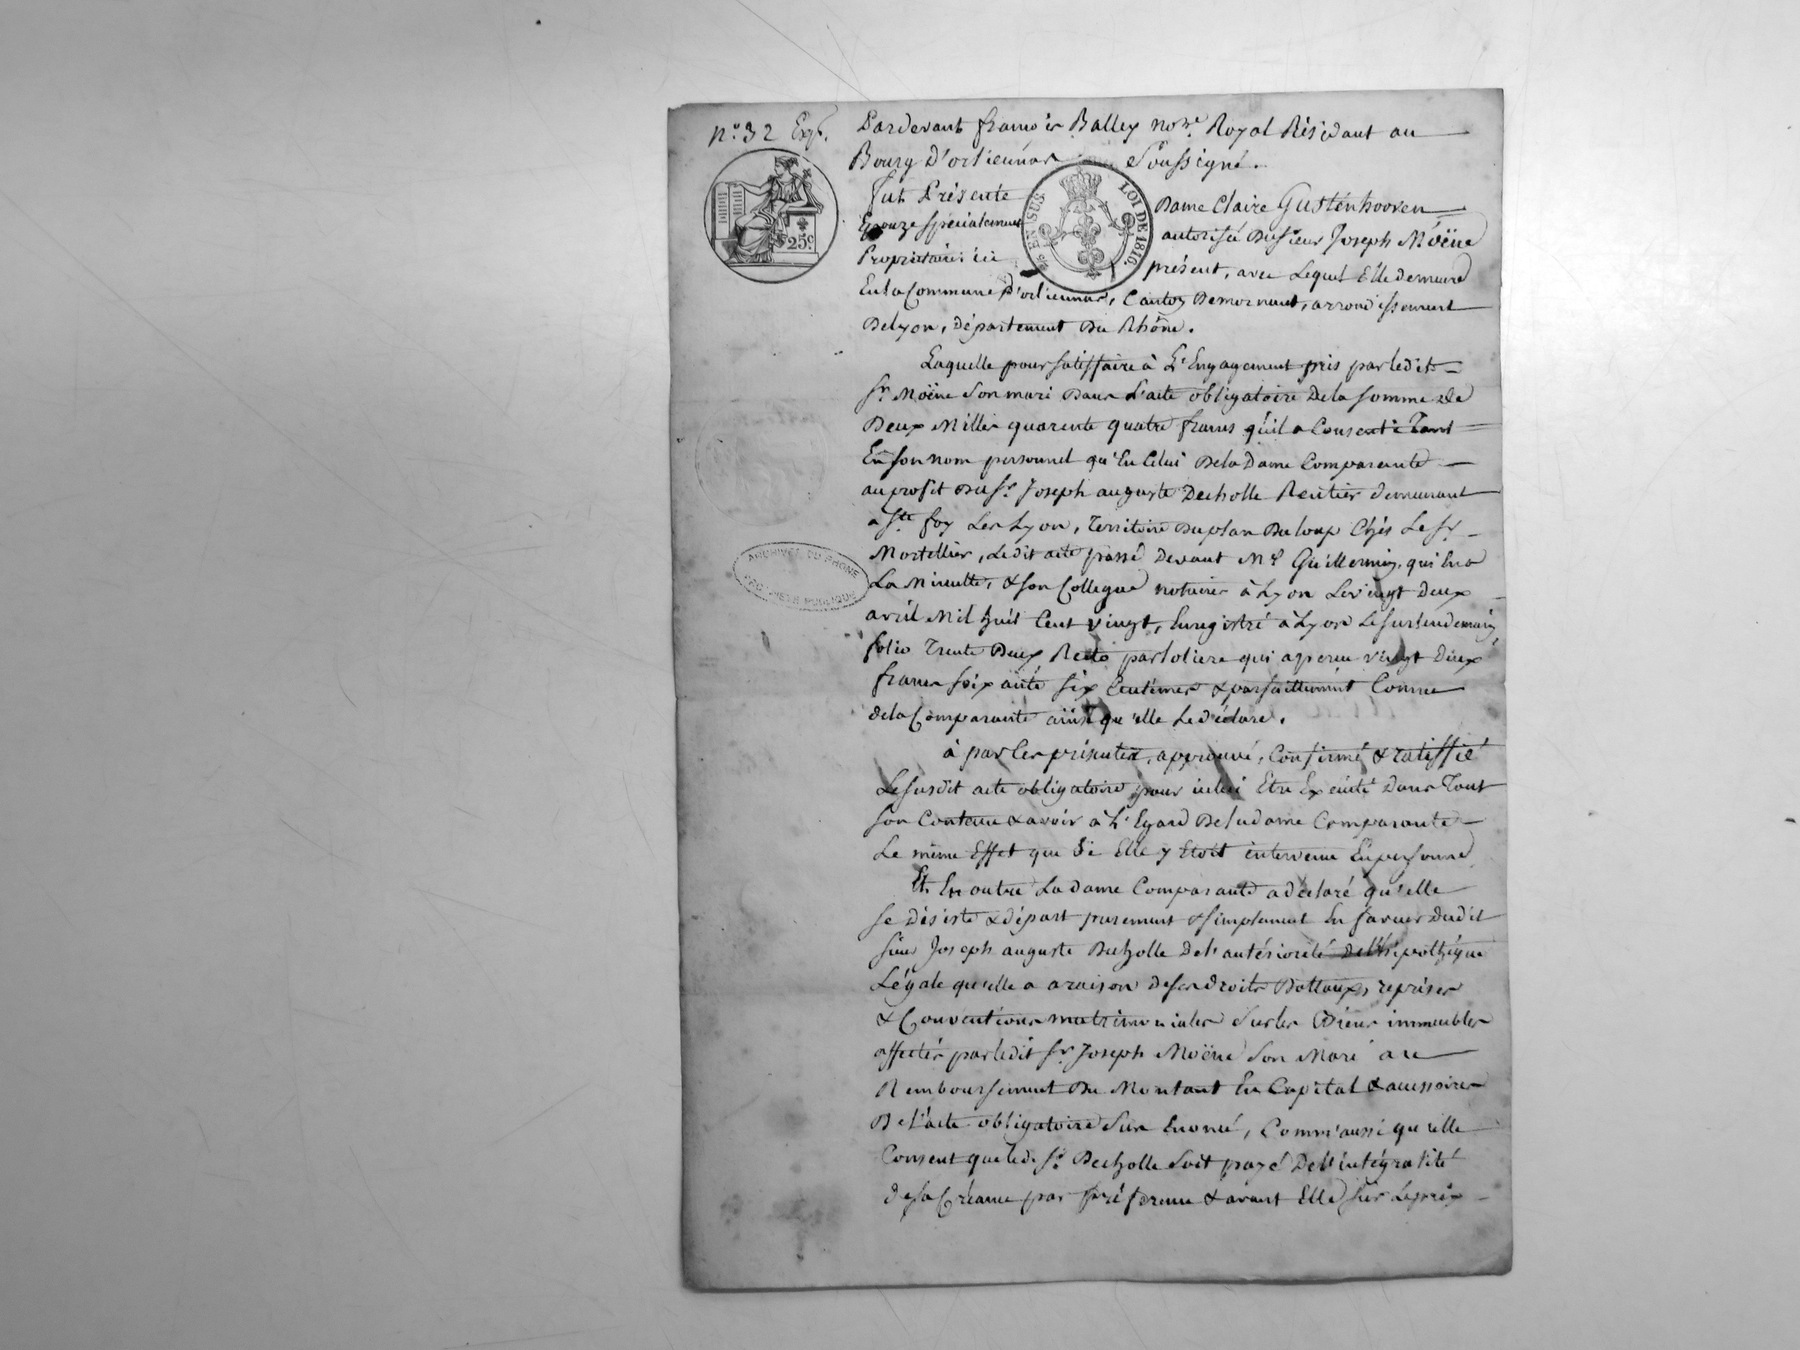 n.º 32 Exp.
Pardevant françois Balley no.re Royal Résidant au
Bourg D'orliénnas Soussigné.
fut Présente Dame Claire Gusténhooven
Epouze spécialement autorisée Du sieur Joseph Moëne
Propriétaire ici présent, avec Lequel Elle demeure
En la Commune D'orliennas, Canton De mornant, arrondissement
De Lyon, Département Du Rhône.
25 c.
EN SUS
LOI DE 1816.
Laquelle pour satisffaire à L'Engagement pris par ledit
Sr. Moëne son mari Dans L'acte obligatoire De la somme de
Deux Milles quarente quatre francs qu'il a Consenti Tant
En son nom personnel qu'En Celui De la Dame Comparante
au profit Du Sr. Joseph auguste Decholle Rentier demeurant
a Ste. foy Les Lyon, Territoire Du plan Du Loup Chés Le Sr.
Mortellier, Ledit acte passé Devant Me. Guillermin, qui En a
La Minutte, & son Collegue notaires à Lyon Le vingt Deux
avril Mil huit Cent vingt, Enregistré à Lyon Le surlendemain
folio Trente Deux Recto par Loliere qui a perçu vingt Deux
francs soixante six Centimes & parfaittement Connu
de la Comparante ainsi qu'elle Le déclare.
ARCHIVES DU RHONE
à par Ces présentes, approuvé, Confirmé & ratiffié
Le susdit acte obligatoire pour icelui Etre Exécuté Dans Tout
son Contenu & avoir à L'Egard De La dame Comparante
Le même Effet que Si Elle y Etoit intervenue En personne
Et En outre La dame Comparante a déclaré qu'elle
se désiste & départ purement & simplement En faveur Dudit
sieur Joseph auguste Decholle De L'antériorité De l'hipothéque
Légale qu'elle a a raison De ses droits Dottaux, reprises
& Conventions matrimoniales Sur les Biens immeubles
affectés par ledit Sr. Joseph Moëne Son Mari au
Remboursement Du Montant En Capital & accessoires
De L'acte obligatoire Sus Enoncé, Comm'aussi qu'elle
Consent que led. Sr. Decholle Soit payé De l'intégralité
de sa Créance par préférence & avant Elle Sur Le prix